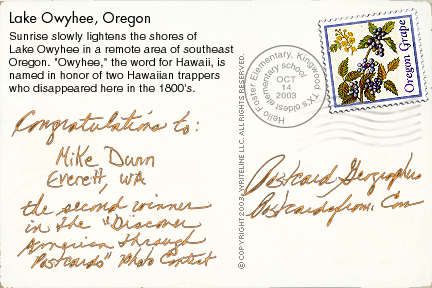 Lake Owyhee, Oregon
Sunrise slowly lightens the shores of
Lake Owyhee in a remote area of southeast
Oregon. "Owyhee," the word for Hawaii, is
named in honor of two Hawaiian trappers
who disappeared here in the 1800's.
Congratulations to:
Mike Dunn
Everett, WA
the second winner
in the "Discover
America through
Postcards" Photo Contest
© COPYRIGHT 2003 WRITELINE LLC. ALL RIGHTS RESERVED.
Hello Foster Elementary, Kingwood
TX's oldest
elementary school
OCT
14
2003
Oregon Grape
Postcard Geographic
Postcardsfrom.Com